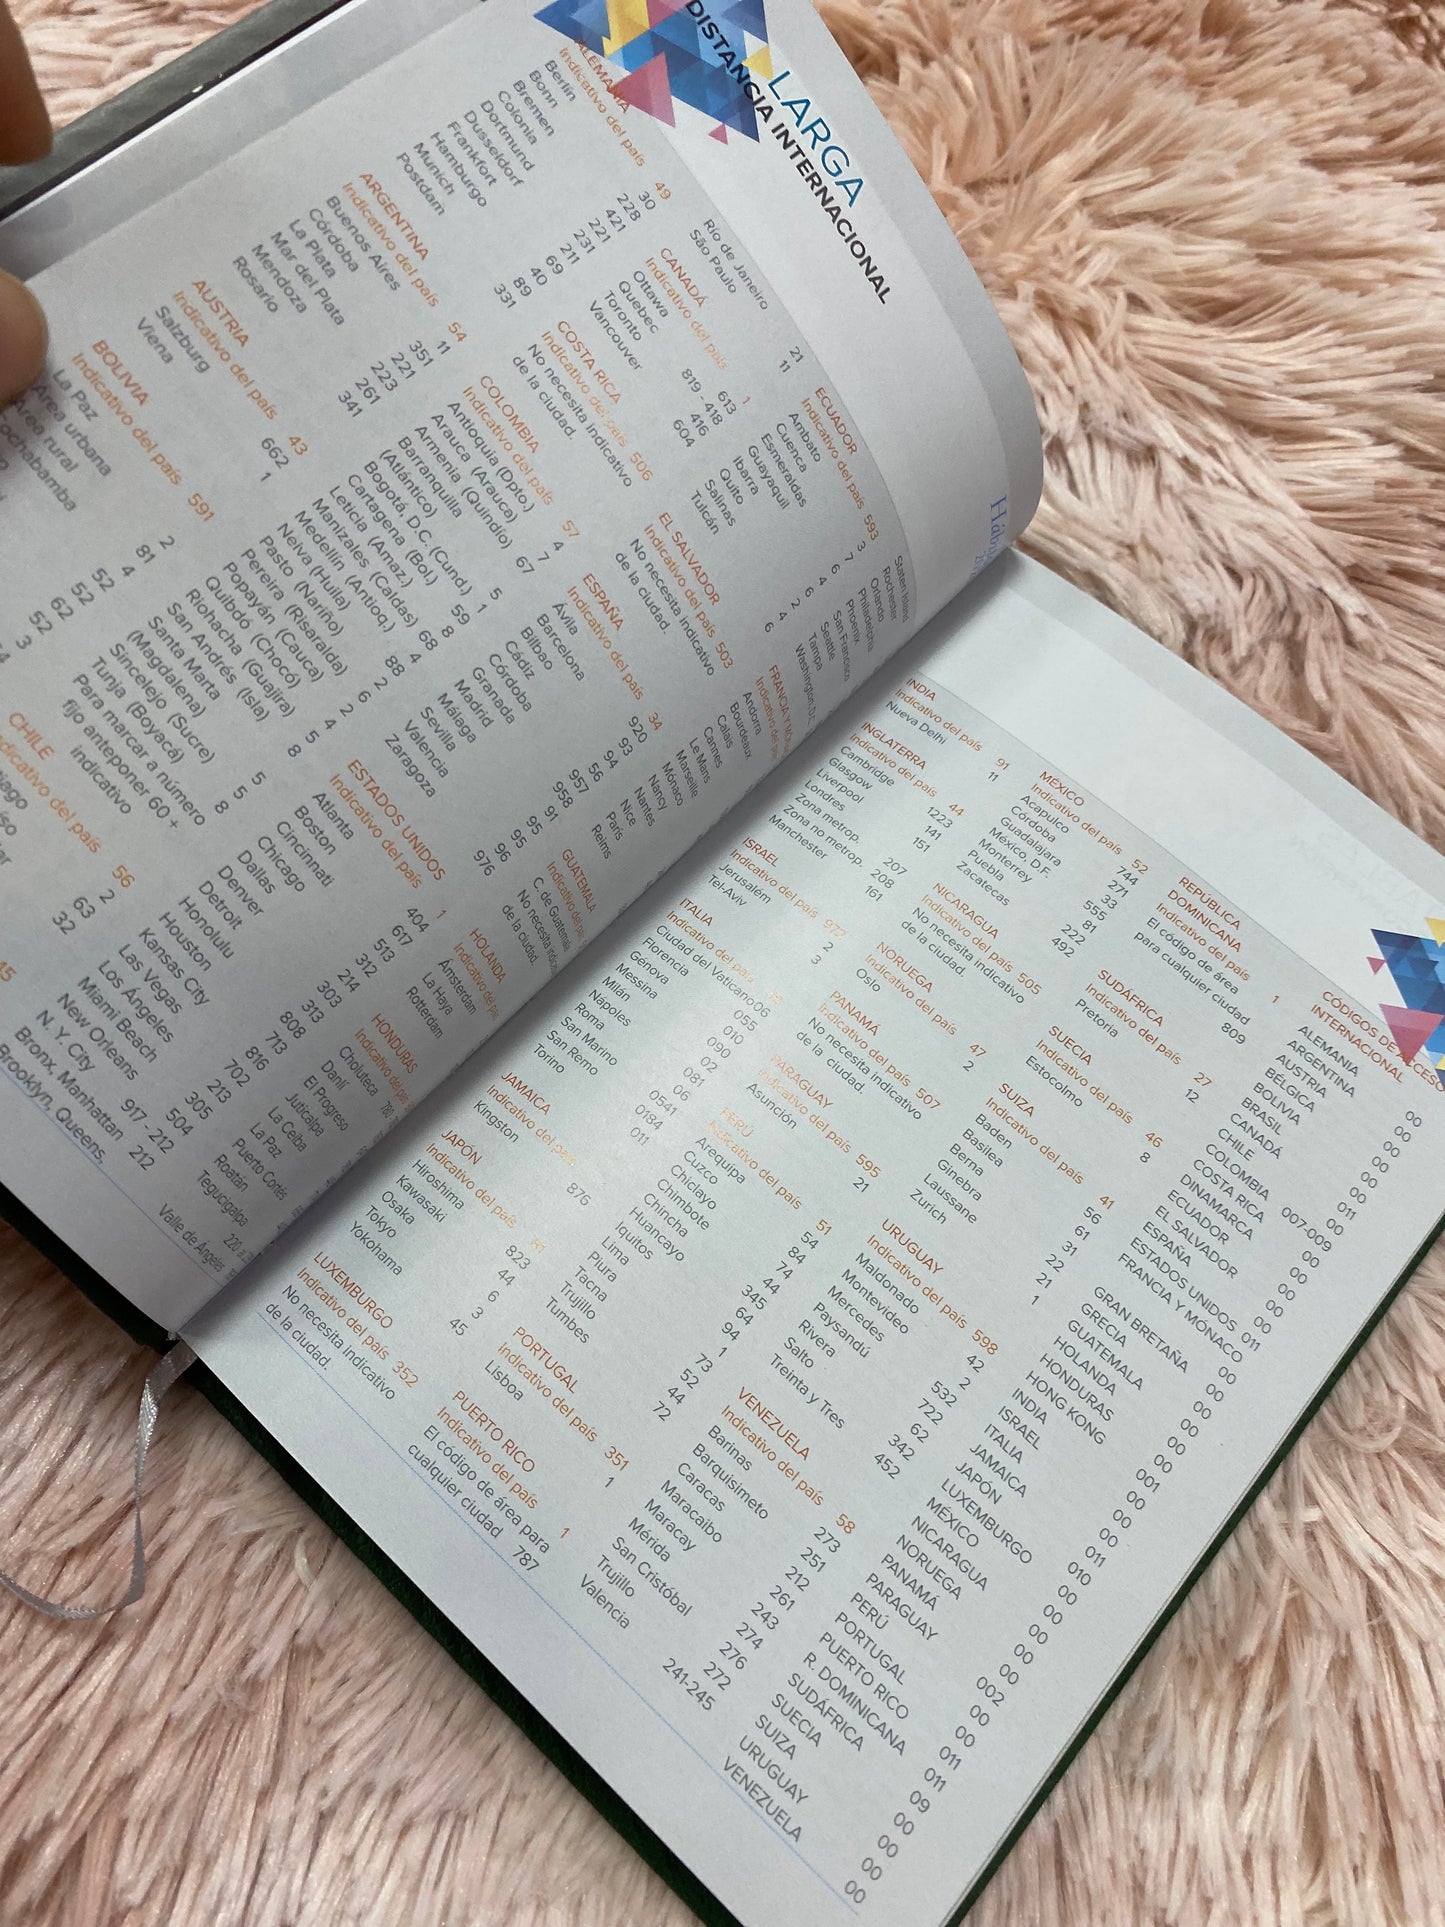 LARGA
DISTANCIA INTERNACIONAL
ALEMANIA
Indicativo del país 49
Berlín 30
Bonn 228
Bremen 421
Colonia 221
Dortmund 231
Dusseldorf 211
Frankfort 69
Hamburgo 40
Munich 89
Postdam 331
ARGENTINA
Indicativo del país 54
Buenos Aires 11
Córdoba 351
La Plata 221
Mar del Plata 223
Mendoza 261
Rosario 341
AUSTRIA
Indicativo del país 43
Salzburg 662
Viena 1
BOLIVIA
Indicativo del país 591
La Paz
Área urbana 2
Área rural 81
CHILE
Indicativo del país 56
Río de Janeiro 21
São Paulo 11
CANADÁ
Indicativo del país 1
Ottawa 613
Quebec 819 - 418
Toronto 416
Vancouver 604
COSTA RICA
Indicativo del país 506
No necesita indicativo
de la ciudad.
COLOMBIA
Indicativo del país 57
Antioquia (Dpto.) 4
Arauca (Arauca) 7
Armenia (Quindío) 67
Barranquilla
(Atlántico) 5
Bogotá, D.C. (Cund.) 1
Cartagena (Bol.) 59
Leticia (Amaz.) 8
Manizales (Caldas) 68
Medellín (Antioq.) 4
Neiva (Huila) 88
Pasto (Nariño) 2
Pereira (Risaralda) 6
Popayán (Cauca) 2
Quibdó (Chocó) 4
Riohacha (Guajira) 5
San Andrés (Isla) 8
Santa Marta
(Magdalena) 5
Sincelejo (Sucre) 5
Tunja (Boyacá) 8
Para marcar a número
fijo anteponer 60 +
indicativo
ECUADOR
Indicativo del país 593
Ambato 3
Cuenca 7
Esmeraldas 6
Guayaquil 4
Ibarra 6
Quito 2
Salinas 4
Tulcán 6
EL SALVADOR
Indicativo del país 503
No necesita indicativo
de la ciudad.
ESPAÑA
Indicativo del país 34
Ávila 920
Barcelona 93
Bilbao 94
Cádiz 56
Córdoba 957
Granada 958
Madrid 91
Málaga 95
Sevilla 95
Valencia 96
Zaragoza 976
ESTADOS UNIDOS
Indicativo del país 1
Atlanta 404
Boston 617
Cincinnati 513
Chicago 312
Dallas 214
Denver 303
Detroit 313
Honolulu 808
Houston 713
Kansas City 816
Las Vegas 702
Los Ángeles 213
Miami Beach 305
New Orleans 504
N. Y. City 917 - 212
Bronx, Manhattan 212
Brooklyn, Queens,
Staten Island
Rochester
Orlando
Philadelphia
Phoenix
San Francisco
Seattle
Tampa
Washington, D.C.
Andorra
Bourdeaux
Calais
Cannes
Le Mans
Marseille
Mónaco
Nancy
Nantes
Nice
París
Reims
GUATEMALA
C. de Guatemala
de la ciudad.
HOLANDA
Amsterdam
La Haya
Rotterdam
HONDURAS
Choluteca
Danlí
El Progreso
Juticalpa
La Ceiba
La Paz
Puerto Cortés
Roatán
Tegucigalpa
Valle de Ángeles
INDIA
Indicativo del país 91
Nueva Delhi 11
INGLATERRA
Indicativo del país 44
Cambridge 1223
Glasgow 141
Liverpool 151
Londres
Zona metrop. 207
Zona no metrop. 208
Manchester 161
ISRAEL
Indicativo del país 972
Jerusalém 2
Tel-Aviv 3
ITALIA
Indicativo del país
Ciudad del Vaticano 06
Florencia 055
Génova 010
Messina 090
Milán 02
Nápoles 081
Roma 06
San Marino 0541
San Remo 0184
Torino 011
JAMAICA
Indicativo del país
Kingston 876
JAPÓN
Indicativo del país 81
Hiroshima 823
Kawasaki 44
Osaka 6
Tokyo 3
Yokohama 45
LUXEMBURGO
Indicativo del país 352
No necesita indicativo
de la ciudad.
MÉXICO
Indicativo del país 52
Acapulco 744
Córdoba 271
Guadalajara 33
México, D.F. 555
Monterrey 81
Puebla 222
Zacatecas 492
NICARAGUA
Indicativo del país 505
No necesita indicativo
de la ciudad.
NORUEGA
Indicativo del país 47
Oslo 2
PANAMÁ
Indicativo del país 507
No necesita indicativo
de la ciudad.
PARAGUAY
Indicativo del país 595
Asunción 21
PERÚ
Indicativo del país 51
Arequipa 54
Cuzco 84
Chiclayo 74
Chimbote 44
Chincha 345
Huancayo 64
Iquitos 94
Lima 1
Piura 73
Tacna 52
Trujillo 44
Tumbes 72
PORTUGAL
Indicativo del país 351
Lisboa 1
PUERTO RICO
Indicativo del país 1
El código de área para
cualquier ciudad 787
REPÚBLICA
DOMINICANA
Indicativo del país 1
El código de área
para cualquier ciudad 809
SUDÁFRICA
Indicativo del país 27
Pretoria 12
SUECIA
Indicativo del país 46
Estocolmo 8
SUIZA
Indicativo del país 41
Baden 56
Basilea 61
Berna 31
Ginebra 22
Laussane 21
Zurich 1
URUGUAY
Indicativo del país 598
Maldonado 42
Montevideo 2
Mercedes 532
Paysandú 722
Rivera 62
Salto 342
Treinta y Tres 452
VENEZUELA
Indicativo del país 58
Barinas 273
Barquisimeto 251
Caracas 212
Maracaibo 261
Maracay 243
Mérida 274
San Cristóbal 276
Trujillo 272
Valencia 241-245
CÓDIGOS DE ACCESO
INTERNACIONAL
ALEMANIA 00
ARGENTINA 00
AUSTRIA 00
BÉLGICA 00
BOLIVIA 00
BRASIL 00
CANADÁ 011
CHILE 00
COLOMBIA 007-009
COSTA RICA 00
DINAMARCA 00
ECUADOR 00
EL SALVADOR 00
ESPAÑA 00
ESTADOS UNIDOS 011
FRANCIA Y MÓNACO 00
GRAN BRETAÑA 00
GRECIA 00
GUATEMALA 00
HOLANDA 00
HONDURAS 00
HONG KONG 001
INDIA 00
ISRAEL 00
ITALIA 00
JAMAICA 011
JAPÓN 010
LUXEMBURGO 00
MÉXICO 00
NICARAGUA 00
NORUEGA 00
PANAMÁ 002
PARAGUAY 00
PERÚ 00
PORTUGAL 00
PUERTO RICO 011
R. DOMINICANA 011
SUDÁFRICA 09
SUECIA 00
SUIZA 00
URUGUAY 00
VENEZUELA 00